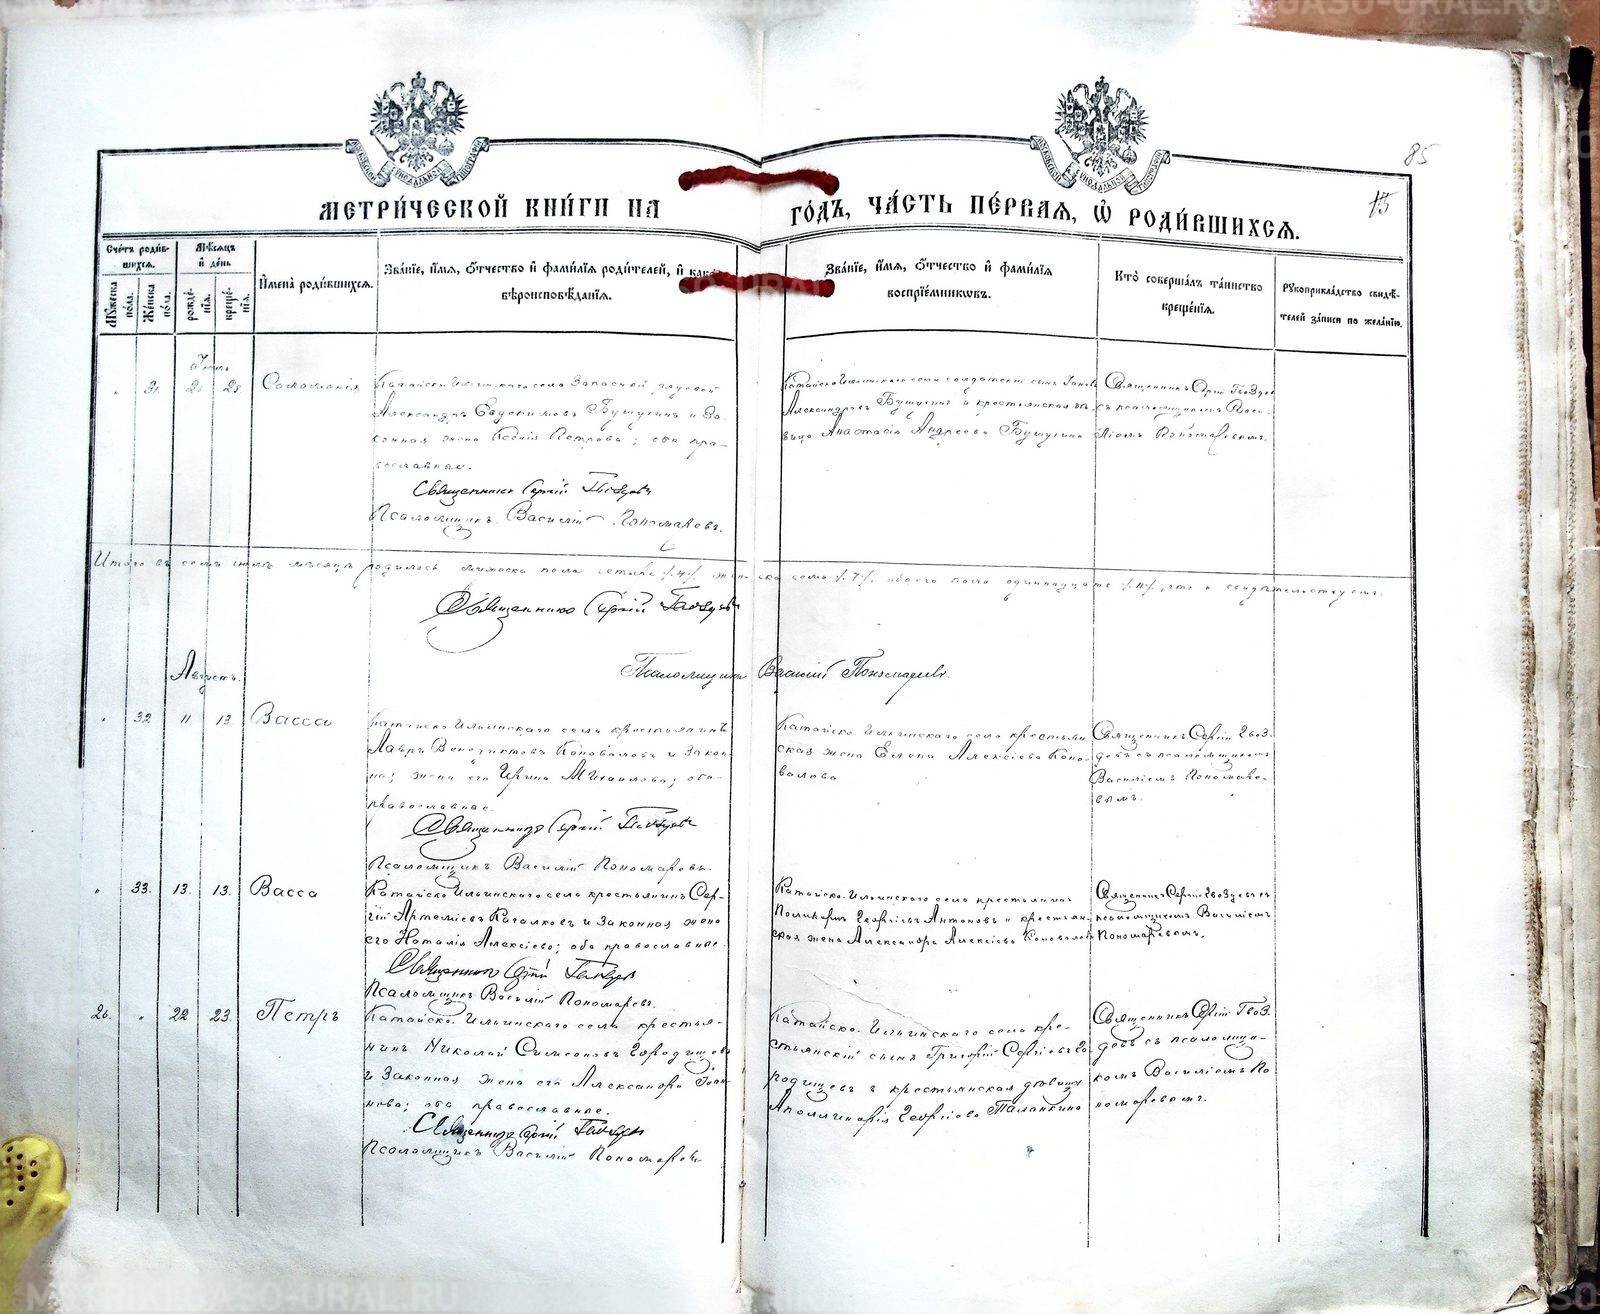 METRIKI.GASO-URAL.RU
85
13
МЕТРИ́ЧЕСКОЙ КНИ́ГИ НА ГО́ДЪ, ЧА́СТЬ ПЕ́РВАЯ, Ѡ РОДИ́ВШИХСЯ.
Сче́тъ роди́в-
шихся.
Му́жеска
по́ла.
Же́нска
по́ла.
Мѣ́сяцъ
и де́нь
рожде́-
нія.
креще́-
нія.
И́мена роди́вшихся.
Зва́ніе, и́мя, ѻ́тчество и фами́лія роди́телей, и како́
вѣроисповѣ́данія.
Зва́ніе, и́мя, ѻ́тчество и фами́лія
воспріе́мниковъ.
Кто̀ соверша́лъ та́инство
креще́нія.
Рꙋкоприкла́дство свидѣ́-
телей за́писи по жела́нію.
Іюль
„ 31. 25. Соломонія
Катайско Ильинскаго села Запасной рядовой
Александръ Евдокимовъ Бушуевъ и за-
конная жена Ксенія Петрова; оба пра-
вославные.
Священникъ Сергій Гвоздевъ
Псаломщикъ Василій Пономаревъ.
Катайско Ильинскаго села солдатскій сынъ
Александровъ и крестьянская дѣ-
вица Анастасія Андреева
Священникъ Сергій Гвоздев
съ псаломщикомъ Васи-
ліемъ Пономаревымъ.
Итого въ семъ іюлѣ мѣсяцѣ родилось мужеска пола четыре /4/ женска семь /7/ обоего пола одиннадцать /11/, что и свидѣтельствуемъ:
Священникъ Сергій Гвоздевъ
Псаломщикъ Василій Пономаревъ.
Августъ.
„ 32 11 13. Васса
Катайско Ильинскаго села крестьянинъ
Лавръ Венедиктовъ Коноваловъ и Закон-
ная жена его Ирина Михаилова; оба
православные.
Священникъ Сергій Гвоздевъ
Псаломщикъ Василій Пономаревъ.
Катайско Ильинскаго села крестьян
ская жена Елена Алексіева Коно-
валова
Священникъ Сергій Гвоз-
девъ съ псаломщикомъ
Василіемъ Пономаре-
вымъ.
„ 33. 13. 13. Васса
Катайско Ильинскаго села крестьянинъ Сер-
гій Артеміевъ и Законная жена
его Наталія Алексіева; оба православные.
Священникъ Сергій Гвоздевъ
Псаломщикъ Василій Пономаревъ.
Катайско Ильинскаго села крестьянинъ
Поликарпъ Георгіевъ Антоновъ и крестьян-
ская жена Александра Алексіева Коновалова
Священникъ Сергій Гвоздевъ съ
псаломщикомъ Василіемъ
Пономаревымъ.
26. „ 22 23. Петръ
Катайско Ильинскаго села кресть-
нинъ Николай Симеоновъ Городищевъ
и Законная жена его Александра Іоан-
нова; оба православные.
Священникъ Сергій Гвоздевъ
Псаломщикъ Василій Пономаревъ
Катайско Ильинскаго села кре-
стьянскій сынъ Григорій Сергіевъ Го-
родищевъ и крестьянская дѣвица
Аполлинарія Георгіева Таланкина
Священникъ Сергій Гвоз-
девъ съ псаломщи-
комъ Василіемъ По
номаревымъ.
METRIKI.GASO-URAL.RU